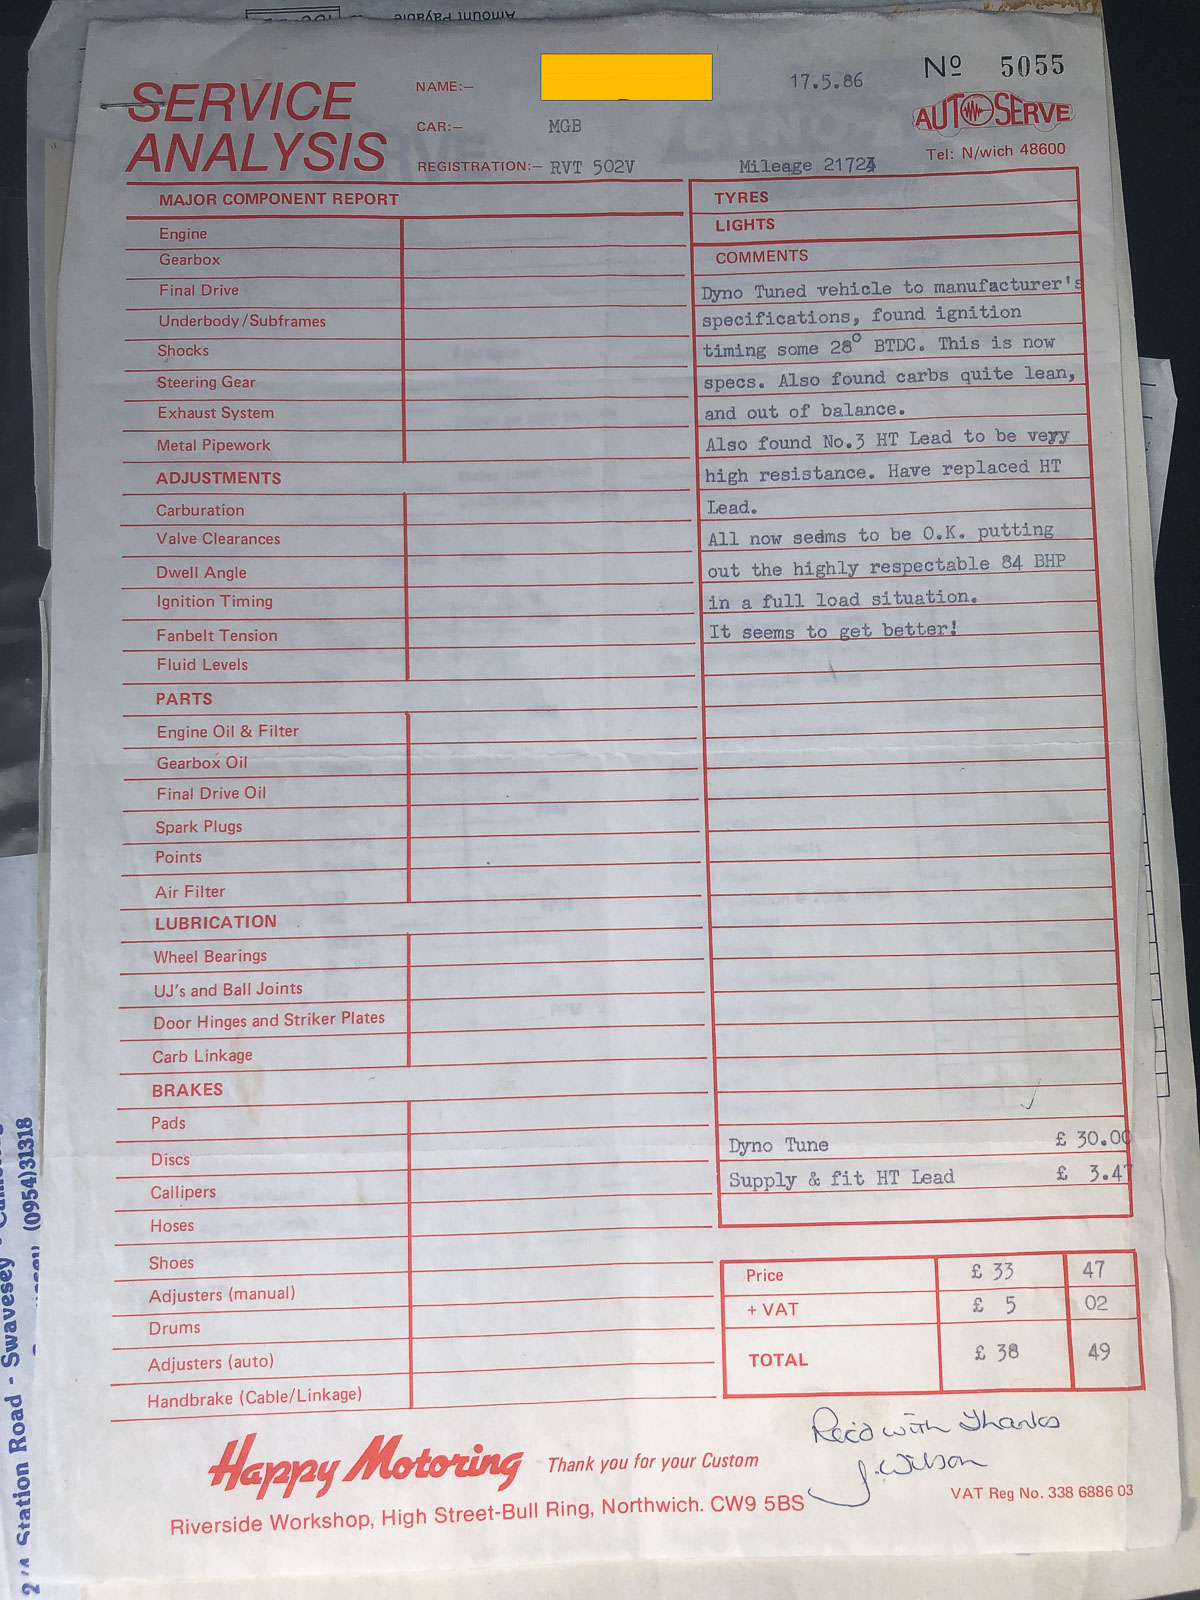 Amount Payable
SERVICE
ANALYSIS
NAME:-
17.5.86
Nº 5055
CAR:- MGB
AUTOSERVE
REGISTRATION:- RVT 502V
Mileage 21723
Tel: N/wich 48600
MAJOR COMPONENT REPORT
Engine
Gearbox
Final Drive
Underbody/Subframes
Shocks
Steering Gear
Exhaust System
Metal Pipework
ADJUSTMENTS
Carburation
Valve Clearances
Dwell Angle
Ignition Timing
Fanbelt Tension
Fluid Levels
PARTS
Engine Oil & Filter
Gearbox Oil
Final Drive Oil
Spark Plugs
Points
Air Filter
LUBRICATION
Wheel Bearings
UJ's and Ball Joints
Door Hinges and Striker Plates
Carb Linkage
BRAKES
Pads
Discs
Callipers
Hoses
Shoes
Adjusters (manual)
Drums
Adjusters (auto)
Handbrake (Cable/Linkage)
TYRES
LIGHTS
COMMENTS
Dyno Tuned vehicle to manufacturer's
specifications, found ignition
timing some 28° BTDC. This is now
specs. Also found carbs quite lean,
and out of balance.
Also found No.3 HT Lead to be very
high resistance. Have replaced HT
Lead.
All now seems to be O.K. putting
out the highly respectable 84 BHP
in a full load situation.
It seems to get better!
Dyno Tune £ 30.00
Supply & fit HT Lead £ 3.47
Price £ 33 47
+ VAT £ 5 02
TOTAL £ 38 49
Rec'd with Thanks
J. Wilson
Happy Motoring Thank you for your Custom
VAT Reg No. 338 6886 03
Riverside Workshop, High Street-Bull Ring, Northwich. CW9 5BS
Station Road - Swavesey
(0954)31318